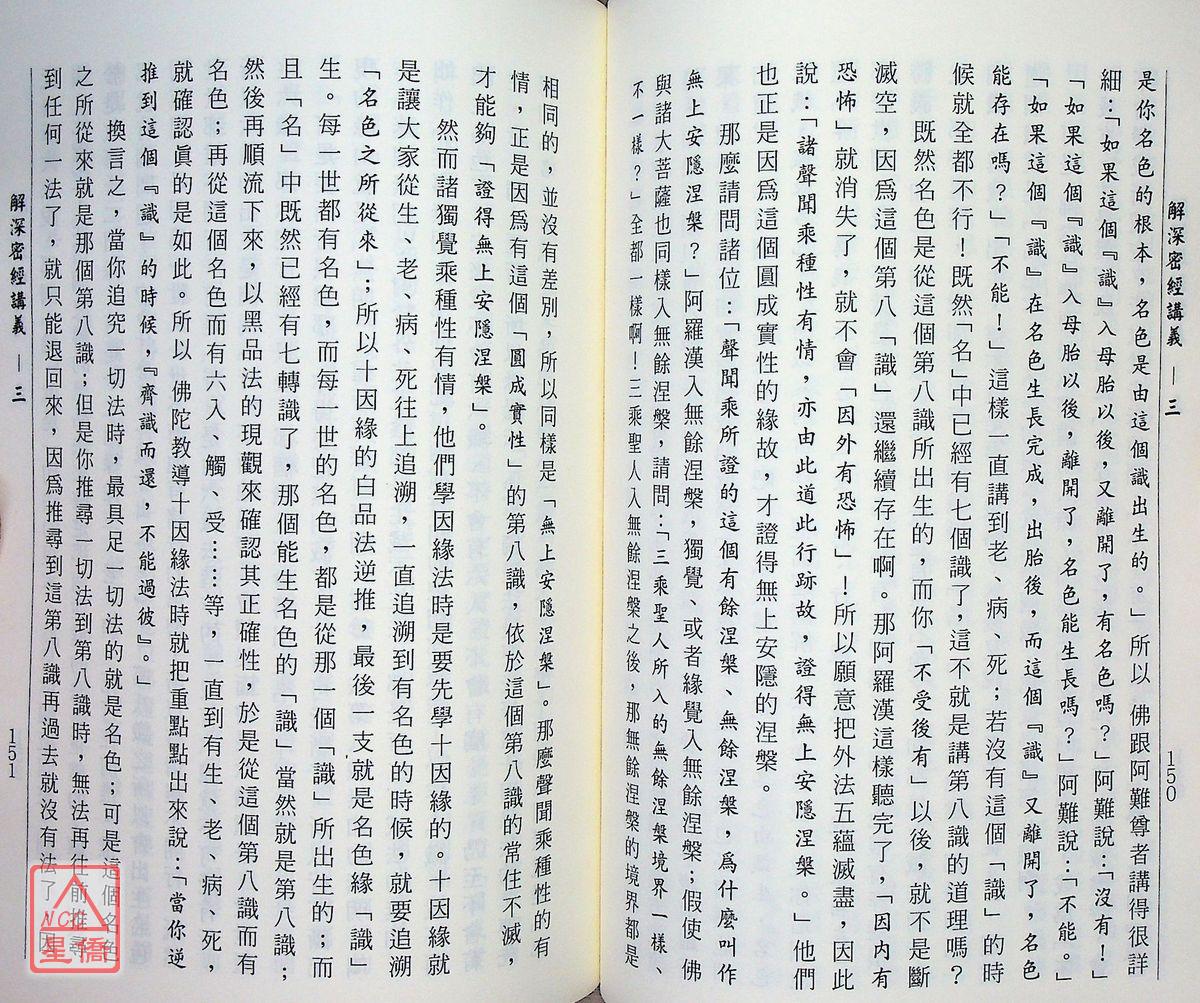 解深密經講義 — 三
150
是你名色的根本，名色是由這個識出生的。」所以　佛跟阿難尊者講得很詳
細：「如果這個『識』入母胎以後，又離開了，有名色嗎？」阿難說：「沒有！」
「如果這個『識』入母胎以後，離開了，名色能生長嗎？」阿難說：「不能。」
「如果這個『識』在名色生長完成，出胎後，而這個『識』又離開了，名色
能存在嗎？」「不能！」這樣一直講到老、病、死；若沒有這個「識」的時
候就全都不行！既然「名」中已經有七個識了，這不就是講第八識的道理嗎？
既然名色是從這個第八識所出生的，而你「不受後有」以後，就不是斷
滅空，因爲這個第八「識」還繼續存在啊。那阿羅漢這樣聽完了，「因內有
恐怖」就消失了，就不會「因外有恐怖」！所以願意把外法五蘊滅盡，因此
說：「諸聲聞乘種性有情，亦由此道此行跡故，證得無上安隱涅槃。」他們
也正是因爲這個圓成實性的緣故，才證得無上安隱的涅槃。
那麼請問諸位：「聲聞乘所證的這個有餘涅槃、無餘涅槃，爲什麼叫作
無上安隱涅槃？」阿羅漢入無餘涅槃，獨覺、或者緣覺入無餘涅槃；假使　佛
與諸大菩薩也同樣入無餘涅槃，請問：「三乘聖人所入的無餘涅槃境界一樣、
不一樣？」全都一樣啊！三乘聖人入無餘涅槃之後，那無餘涅槃的境界都是
相同的，並沒有差別，所以同樣是「無上安隱涅槃」。那麼聲聞乘種性的有
情，正是因爲有這個「圓成實性」的第八識，依於這個第八識的常住不滅，
才能夠「證得無上安隱涅槃」。
然而諸獨覺乘種性有情，他們學因緣法時是要先學十因緣的。十因緣就
是讓大家從生、老、病、死往上追溯，一直追溯到有名色的時候，就要追溯
「名色之所從來」；所以十因緣的白品法逆推，最後一支就是名色緣「識」
生。每一世都有名色，而每一世的名色，都是從那一個「識」所出生的；而
且「名」中既然已經有七轉識了，那個能生名色的「識」當然就是第八識；
然後再順流下來，以黑品法的現觀來確認其正確性，於是從這個第八識而有
名色；再從這個名色而有六入、觸、受……等，一直到有生、老、病、死，
就確認眞的是如此。所以　佛陀教導十因緣法時就把重點點出來說：「當你逆
推到這個『識』的時候，『齊識而還，不能過彼』。」
換言之，當你追究一切法時，最具足一切法的就是名色；可是這個名色
之所從來就是那個第八識；但是你推尋一切法到第八識時，無法再往前推尋
到任何一法了，就只能退回來，因爲推尋到這第八識再過去就沒有法了，因
解深密經講義 — 三
151
NCC
星僑